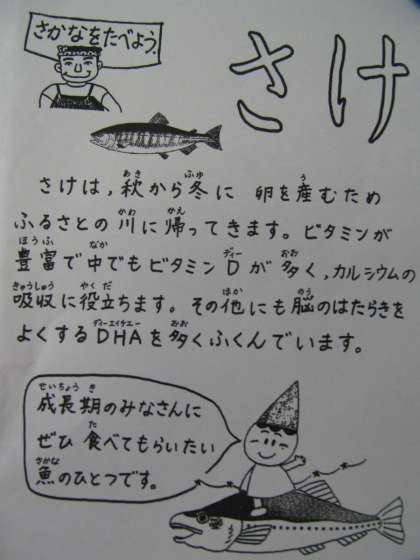 さかなをたべよう!
さけ
さけは,秋から冬に 卵を産むため
ふるさとの川に帰ってきます。ビタミンが
豊富で中でもビタミンDが多く,カルシウムの
吸収に役立ちます。その他にも脳のはたらきを
よくするDHAを多くふくんでいます。
成長期のみなさんに
ぜひ食べてもらいたい
魚のひとつです。